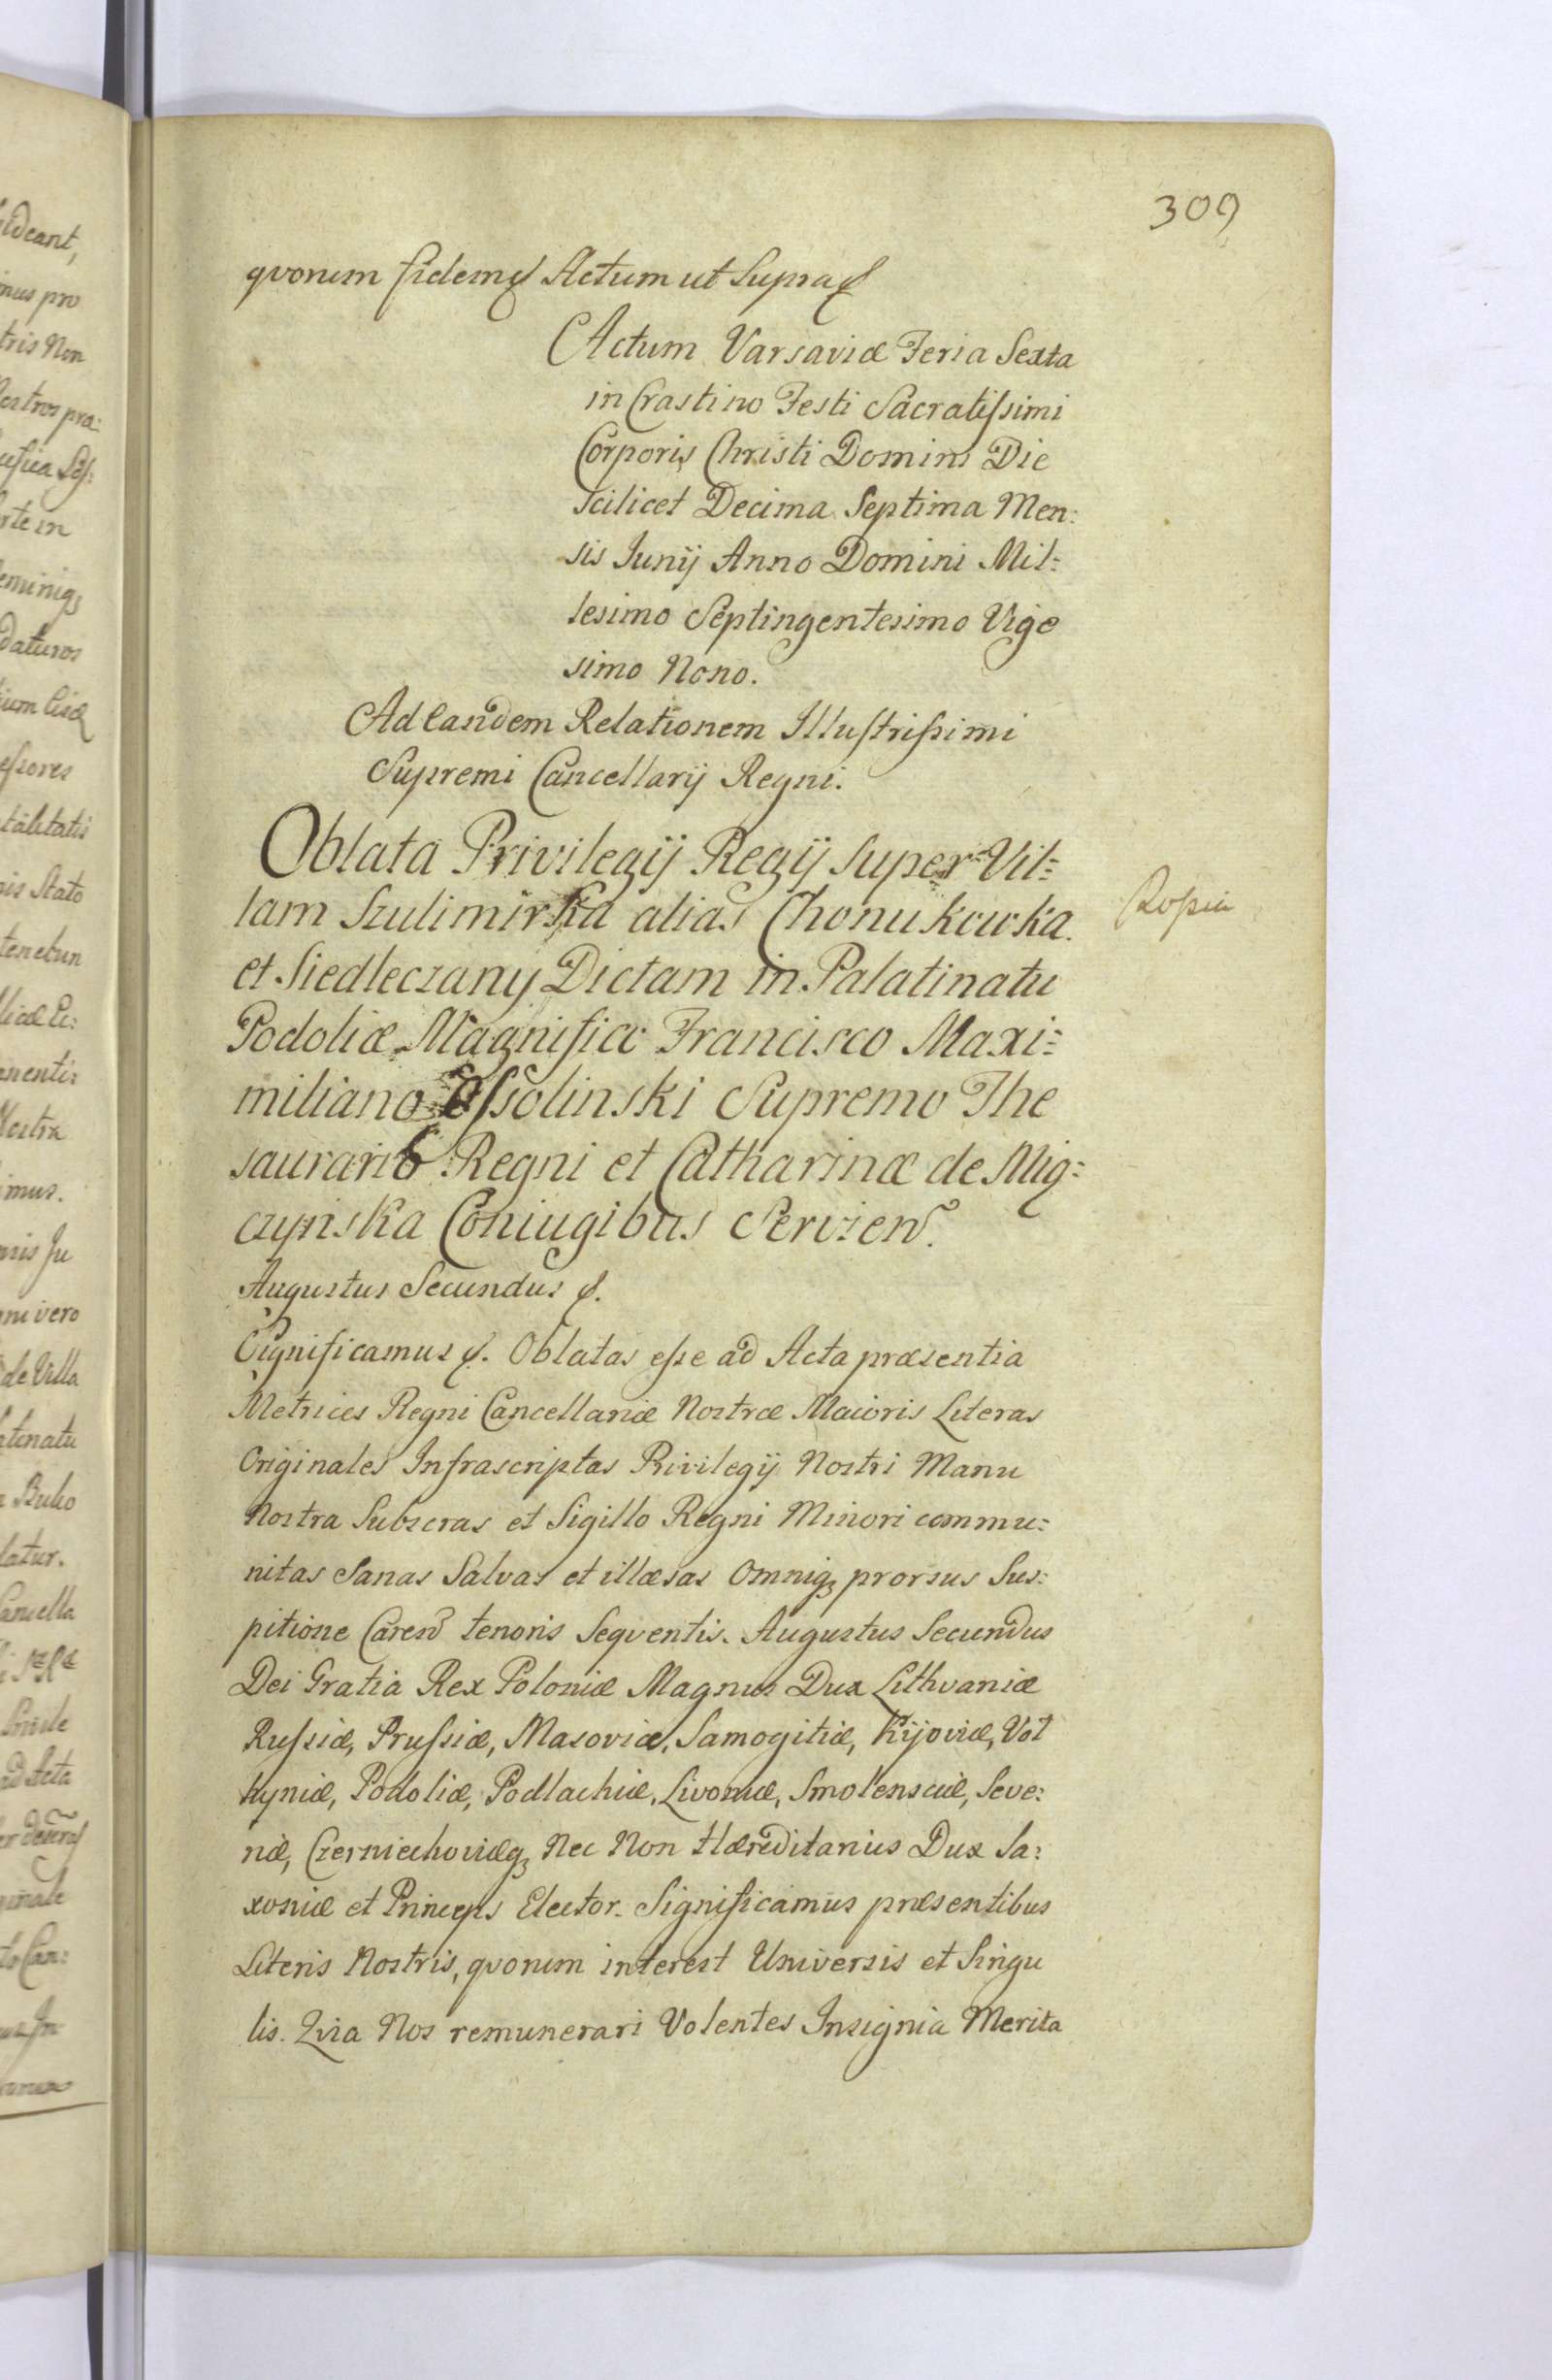 309
quorum fidem &c Actum ut Supra &c
Actum Varsaviæ Feria Sexta
in Crastino Festi Sacratissimi
Corporis Christi Domini Die
scilicet Decima Septima Men:
sis Junij Anno Domini Mil:
lesimo Septingentesimo Vige
simo Nono.
Ad Eandem Relationem Illustrissimi
Supremi Cancellarij Regni.
Oblata Privilegij Regij Super Vil:
lam Szulimirka alias Chonukowka
et Siedleczany Dictam in Palatinatu
Podoliæ Magnifico Francisco Maxi:
miliano Ossolinski Supremo The
saurario Regni et Catharinæ de Mig:
czynska Coniugibus Servien.
Rossia
Augustus Secundus &c.
Significamus &c. Oblatas esse ad Acta præsentia
Metrices Regni Cancellariæ Nostræ Maioris Literas
Originales Infrascriptas Privilegij Nostri Manu
Nostra Subscras et Sigillo Regni Minori commu:
nitas Sanas Salvas et illæsas Omniq prorsus Sus:
pitione Caren tenoris Sequentis. Augustus Secundus
Dei Gratia Rex Poloniæ Magnus Dux Lithvaniæ
Russiæ, Prussiæ, Masoviæ, Samogitiæ, Kijoviæ, Vol
hyniæ, Podoliæ, Podlachiæ, Livoniæ, Smolensciæ, Seve:
riæ, Czerniechoviæq Nec Non Hæreditarius Dux Sa:
xoniæ et Princeps Elector. Significamus præsentibus
Literis Nostris, quorum interest Universis et Singu
lis. Qvia Nos remunerari Volentes Insignia Merita